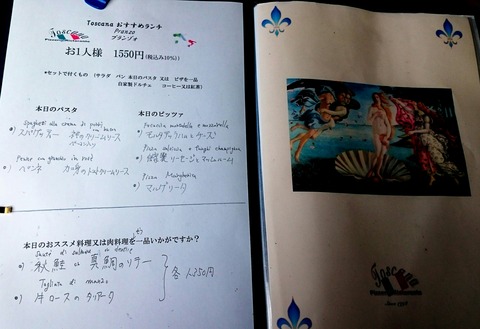 Toscana おすすめランチ
Pranzo
プランゾォ
Toscana
お1人様 1550円(税込み10%)
*セットで付くもの (サラダ パン 本日のパスタ 又は ピザを一品
自家製ドルチェ コーヒー又は紅茶)
本日のパスタ
Spaghetti alla crema di
スパゲッティー クリームソース
Penne con granchio in rosé
ペンネ カニのトマトクリームソース
本日のピッツァ
Focaccia mortadella e mozzarella
モルタデッラハムとチーズ
Pizza salsiccia e funghi champignon
自家製ソーセージとマッシュルーム
Pizza Margherita
マルゲリータ
本日のおススメ料理又は肉料理をもう一品いかがですか?
Sauté di salmone o dentice
秋鮭 か 真鯛のソテー
Tagliata di manzo
牛ロースのタリアータ
各 人250円
Toscana
Since 1989